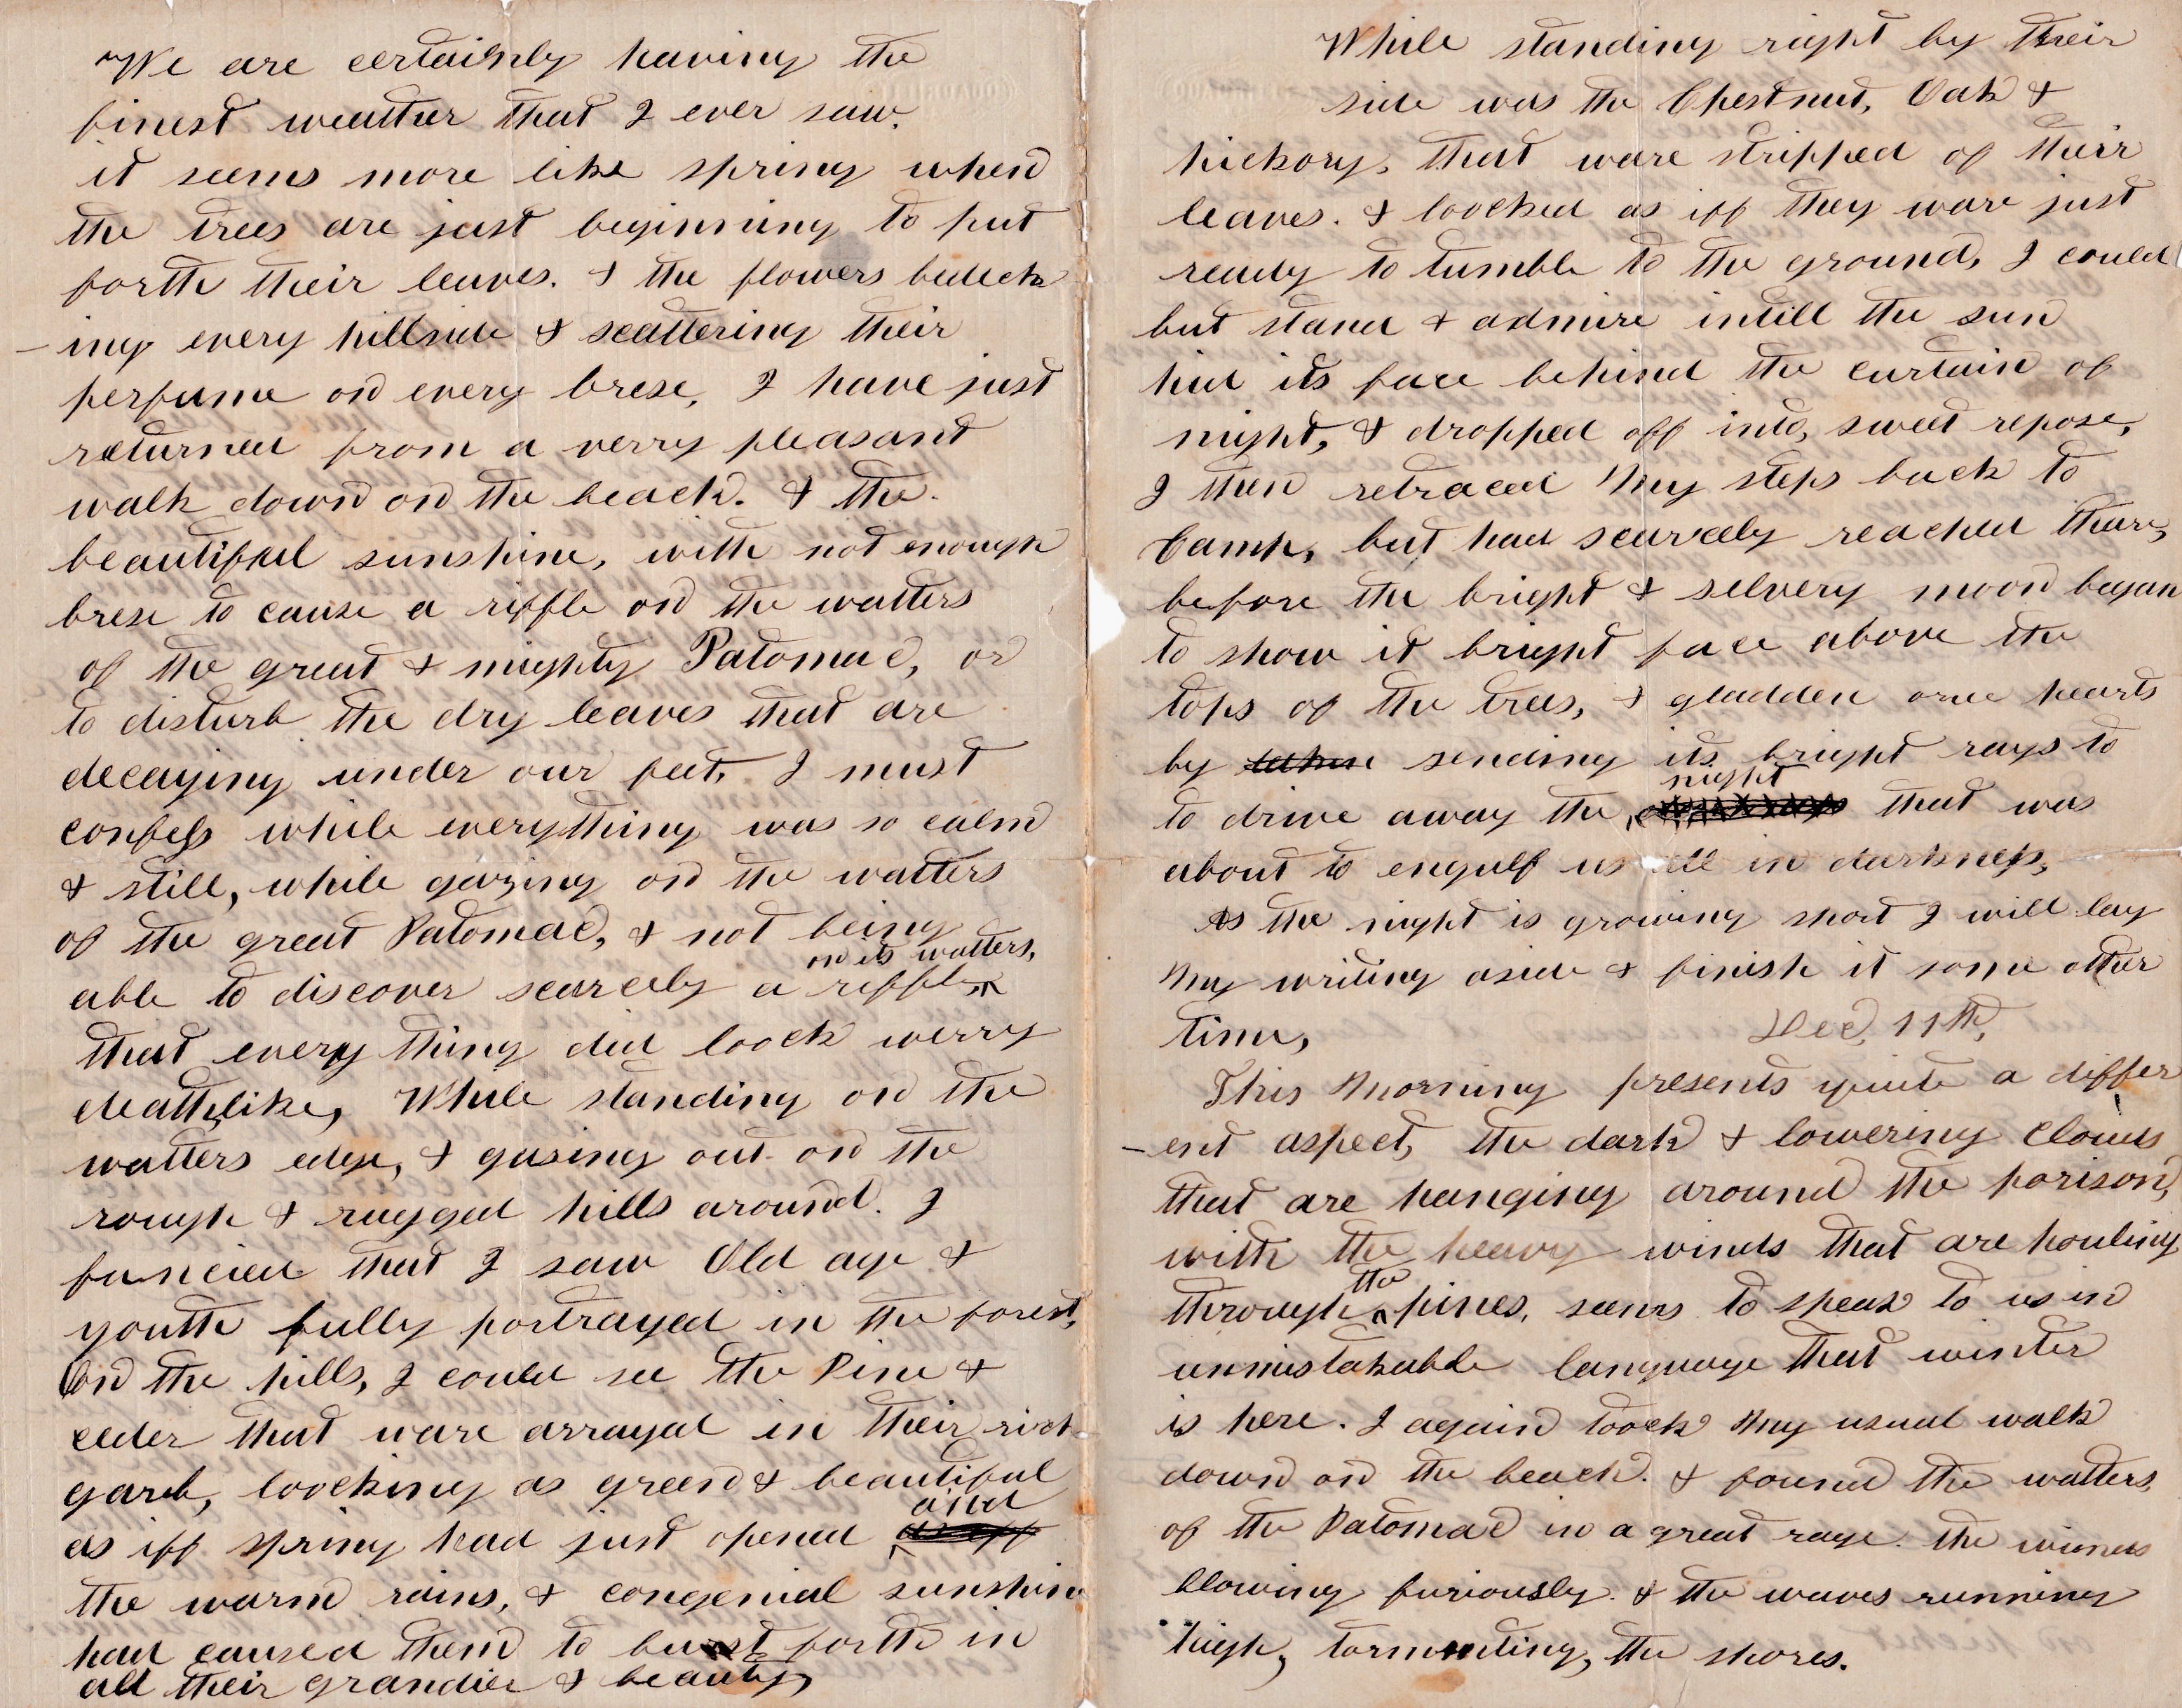 We are certainly having the
finest weather that I ever saw.
it seems more like spring when
the trees are just beginning to put
forth their leaves. & the flowers bedeck
-ing every hillside & scattering their
perfume on every brese, I have just
returned from a verry pleasant
walk down on the beach. & the
beautiful sunshine, with not enough
brese to cause a riffle on the watters
of the great & mighty Patomac, or
to disturb the dry leaves that are
decaying under our feet, I must
confess while everything was so calm
& still, while gazing on the watters
of the great Patomac, & not being
on its watters,
able to discover scarcely a riffle
that every thing did loock verry
deathlike, While standing on the
watters edge, & gasing out on the
rough & rugged hills around. I
fancied that I saw Old age &
youth fully portrayed in the forest,
on the hills, I could see the Pine &
ceder that ware arrayed in their rich
garb, loocking as green & beautiful
and
as iff spring had just opened as iff
the warm rains, & congenial sunshine
had caused them to burst forth in
all their grandier & beauty,
While standing right by their
side was the Chestnut, Oak &
hickory, that ware stripped of their
leaves. & loocked as iff they ware just
ready to tumble to the ground, I could
but stand & admire intill the sun
hid its face behind the curtain of
night, & dropped off into, sweet repose,
I then retraced My steps back to
Camp, but had scarcely reached thare,
before the bright & selvery moon began
to show it bright face above the
tops of the trees, & gladden our hearts
by sending its bright rays to
night
to drive away the that was
about to engulf us all in darkness,
As the night is growing short I will lay
My writing aside & finish it some other
time,
Dec, 11th,
This Morning presents quite a differ
-ent aspect, the dark & lowering clouds
that are hanging around the horison,
with the heavy winds that are houling
the
through pines, seems to speak to us in
unmistakable language that winter
is here. I again toock My usual walk
down on the beach. & found the watters,
of the Patomac in a great rage. the winds
blowing furiously. & the waves running
high, tormenting, the shores.